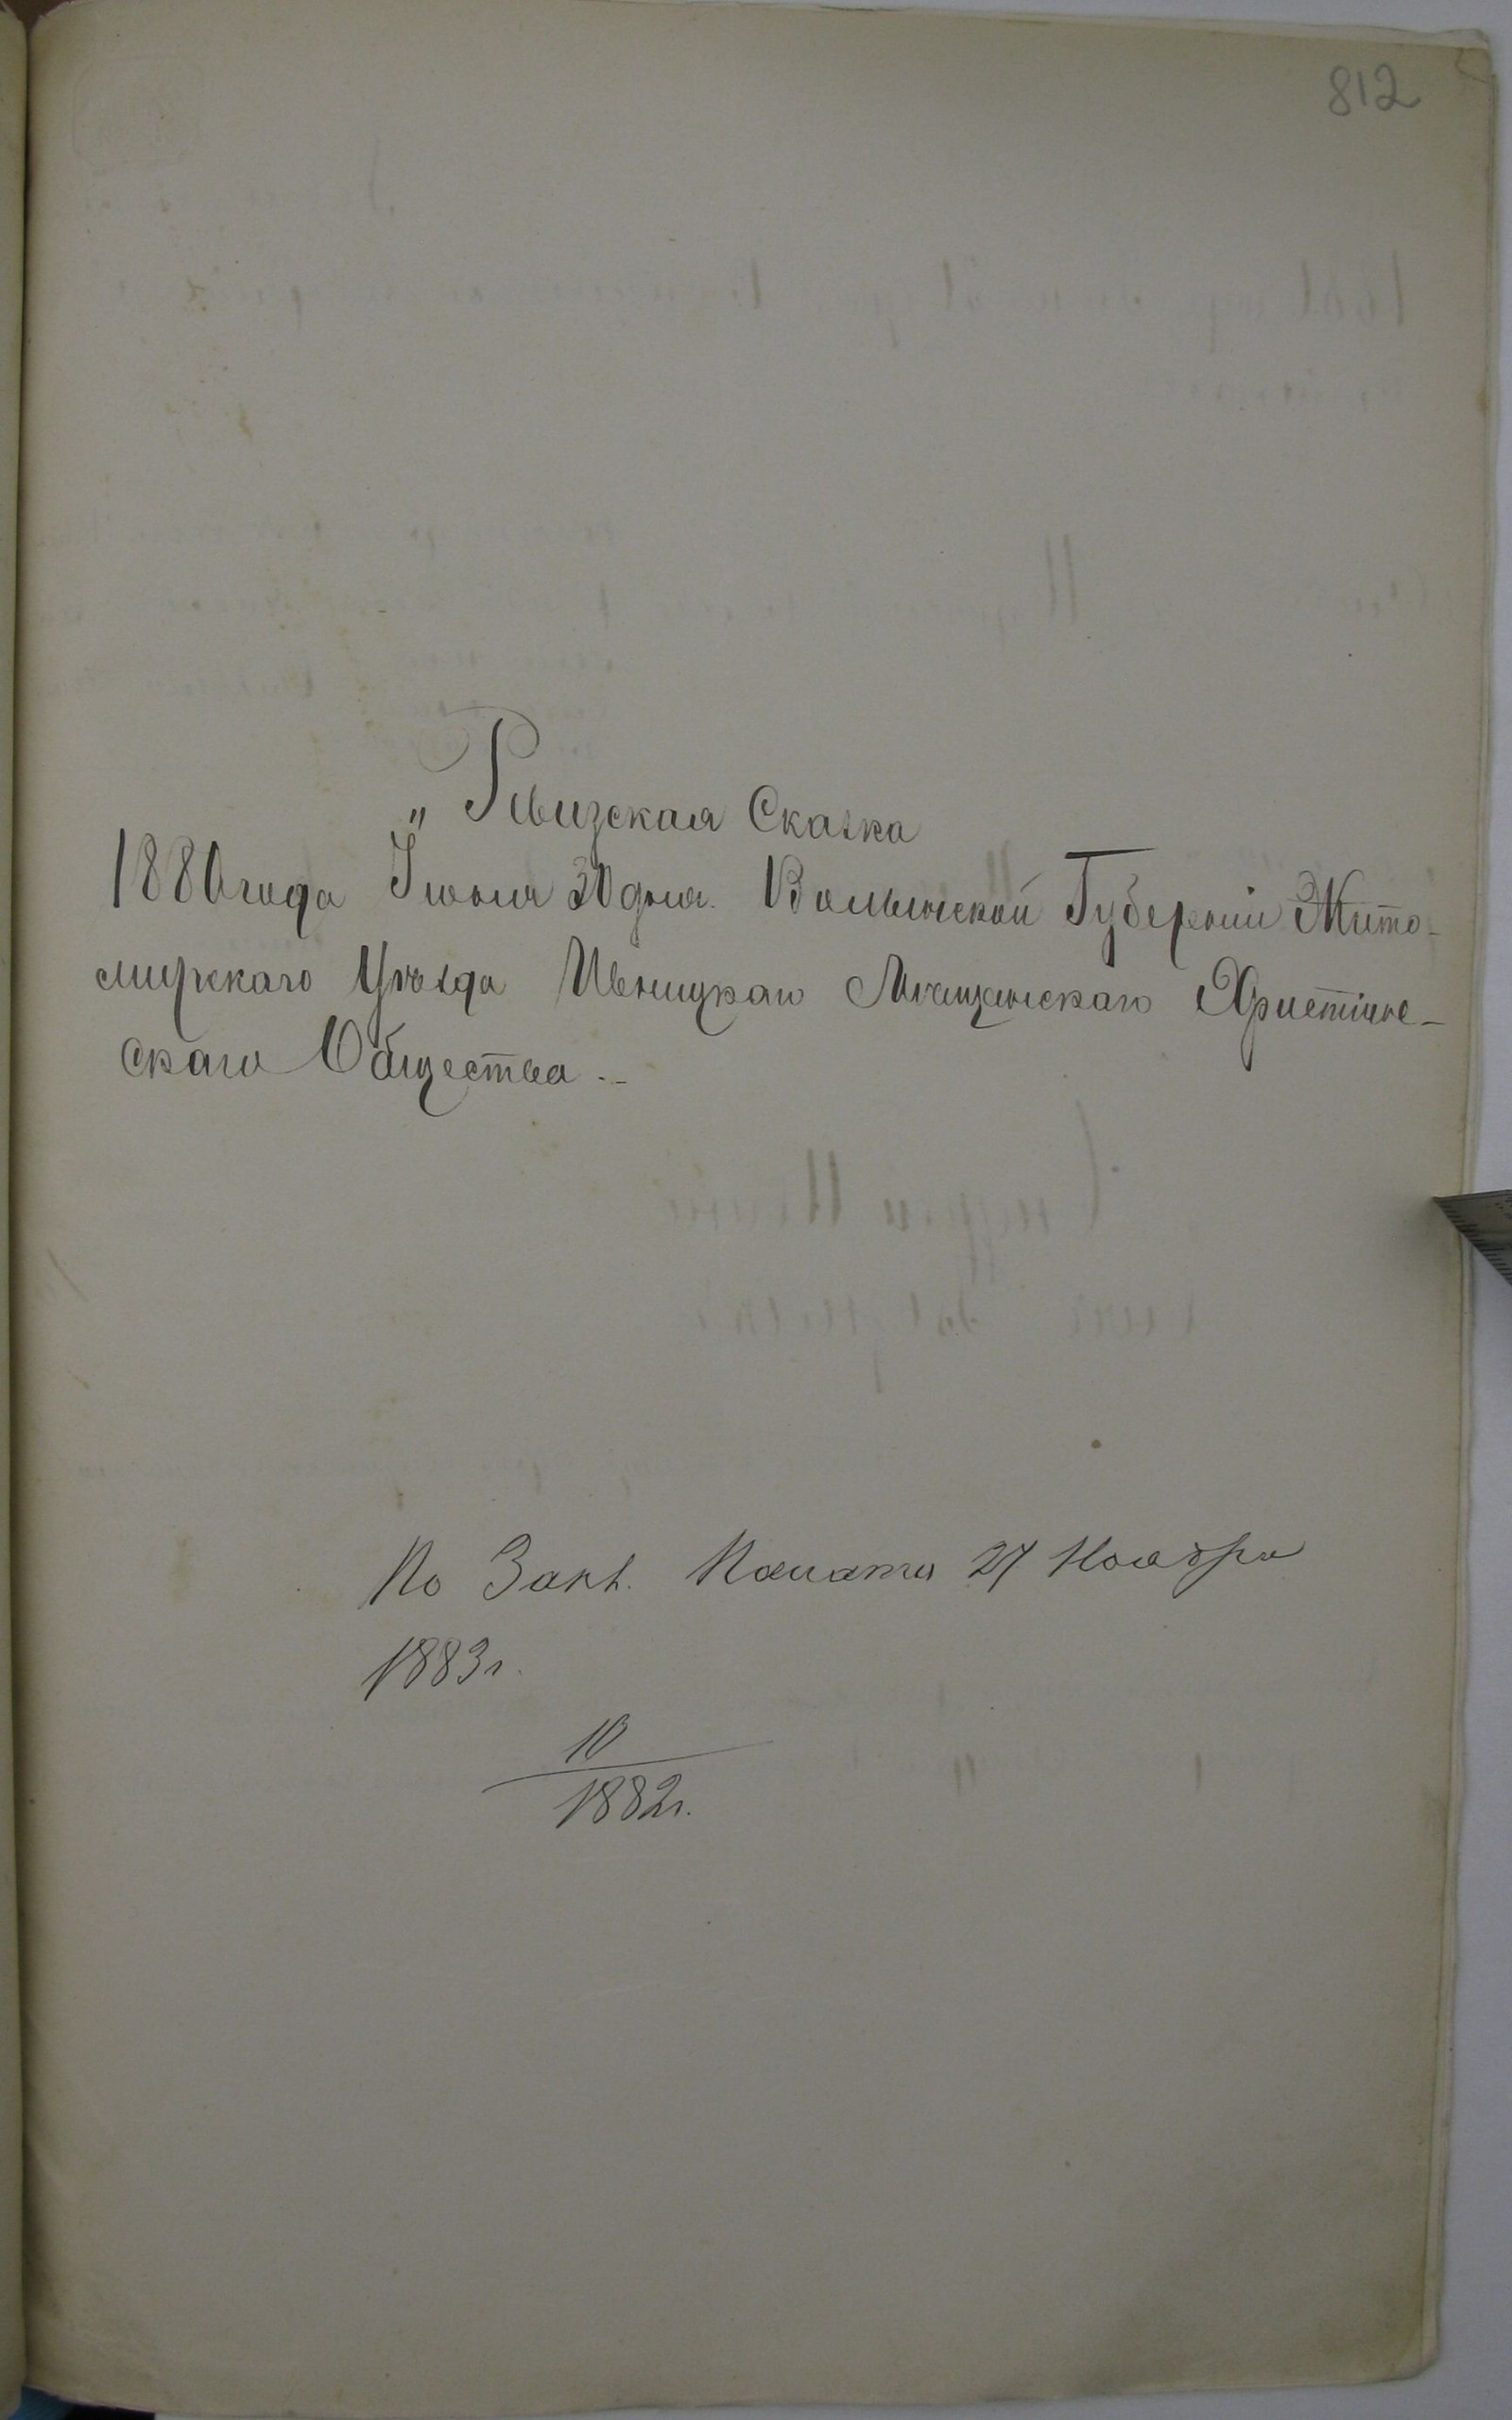 812
„ Ревизская Сказка
1880 года Іюня 30 дня. Волынской Губерніи Жито-
мирскаго Уѣзда Ивницкаго Мѣщанскаго Христіане-
скаго Общества.-
По Закл. Палаты 27 Ноября
1883 г.
10
1882 г.